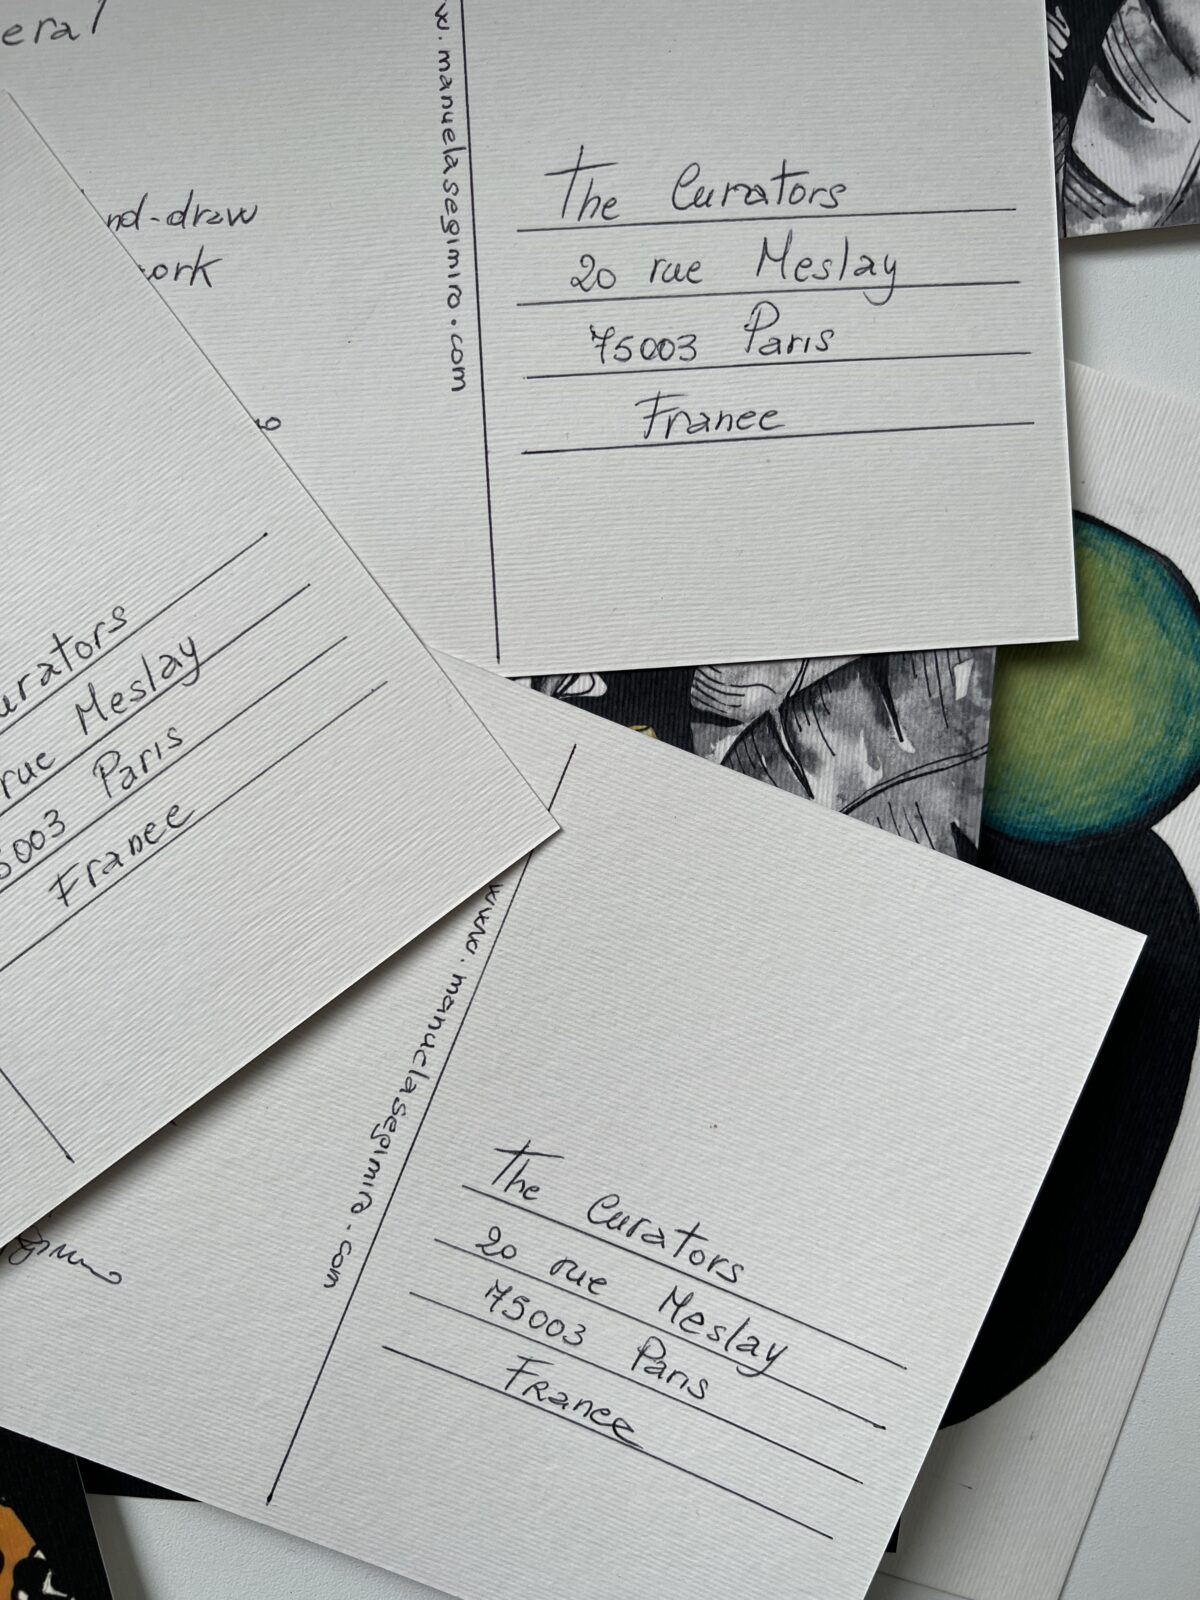 eral
nd-draw
ork
w.manuelasegimiro.com
The Curators
20 rue Meslay
75003 Paris
France
urators
rue Meslay
5003 Paris
France
www.manuelasegimiro.com
The Curators
20 rue Meslay
75003 Paris
France